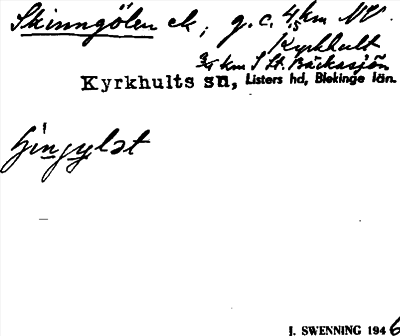 Skinngölen ck, g. c. 4,5 km NV
Kyrkhult
3/4 km S St. Bäckasjön
Kyrkhults sn, Listers hd, Blekinge län.
J. SWENNING 1946